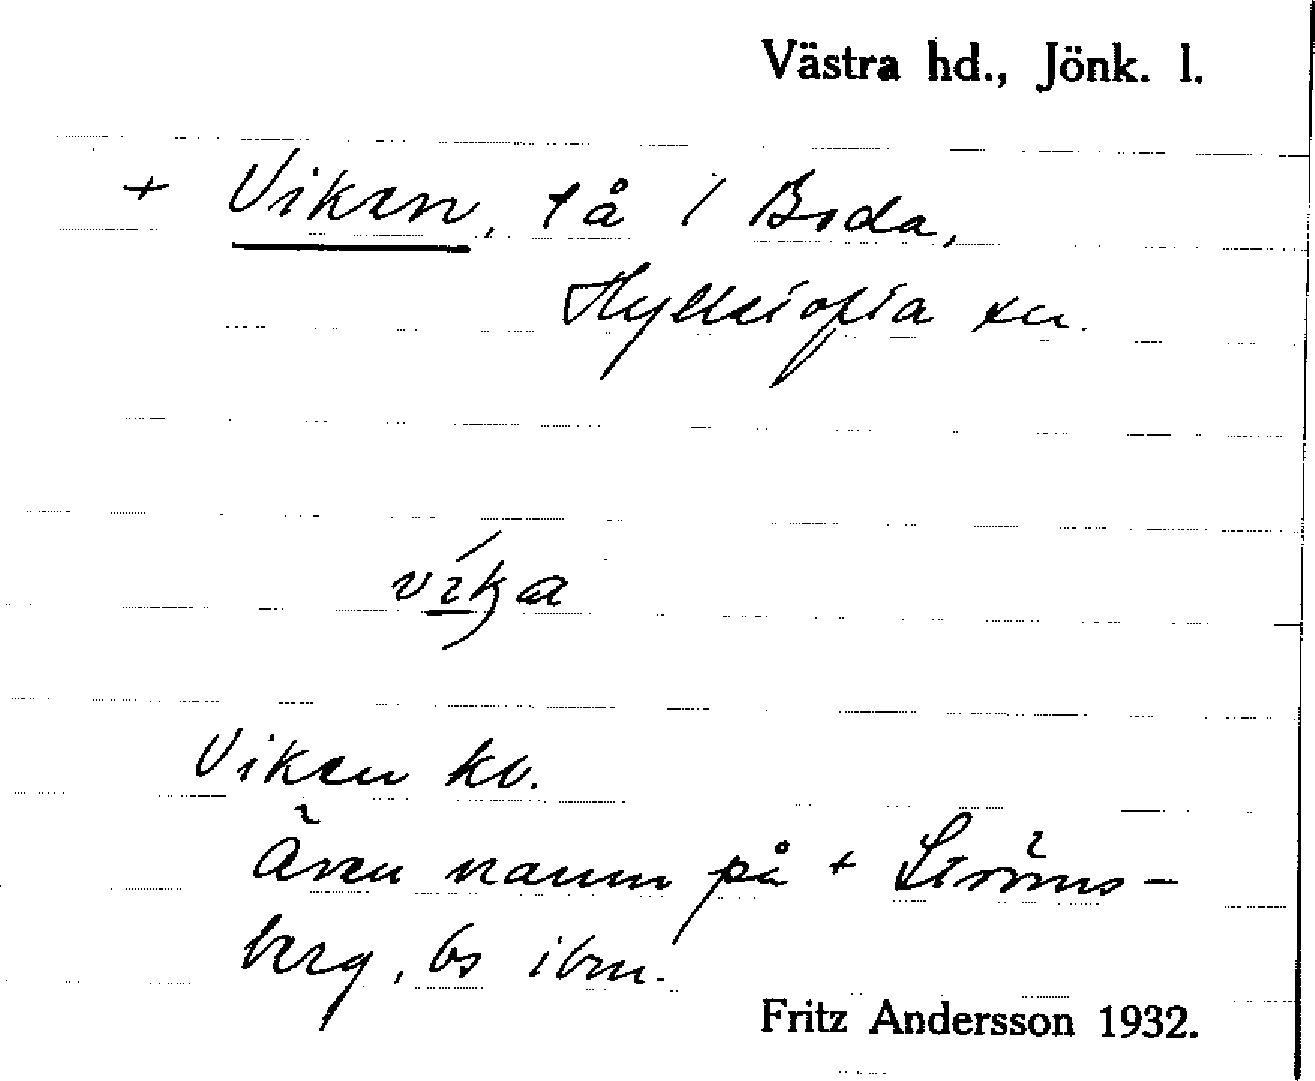 Västra hd., Jönk. l.
+ Viken, tå i Boda,
Hylletofta sn.
víka
Viken kv.
Även namn på + Ströms-
berg, bs ibm.
Fritz Andersson 1932.